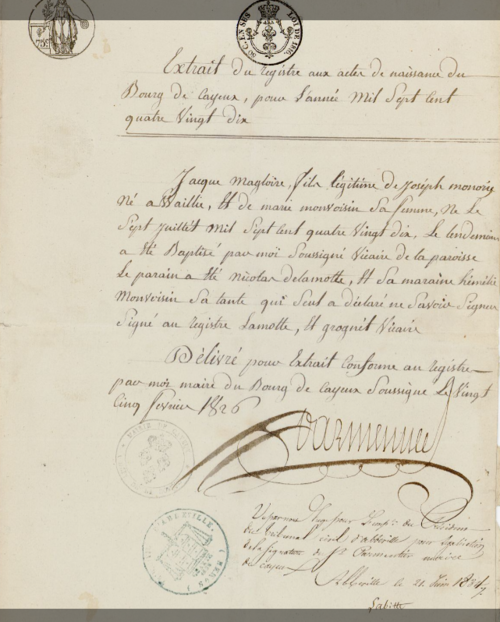 LOI DE 1816.
Extrait du registre aux actes de naissance du
Bourg de Cayeux, pour l'année Mil Sept Cent
quatre Vingt dix
Jacque Magloire, fils légitime de Joseph
Né a Et de marie monvoisin Sa femme, Né Le
Sept Juillet Mil Sept Cent quatre Vingt dix, Le lendemain
a été Baptisé par moi Soussigné Vicaire de la paroisse
Le parain a été Nicolas delamotte, Et Sa maraine
Monvoisin Sa tante qui Seul a déclaré ne Savoir Signer
Signé au registre Lamotte, Et Vicaire
Délivré pour Extrait Conforme au registre
par moi maire du Bourg de Cayeux Soussigné Le Vingt
Cinq fevrier 1826
Vu par nous Juge pour
du tribunal civil d'abbeville pour
de la signature de
de Cayeux
Abbeville le 21